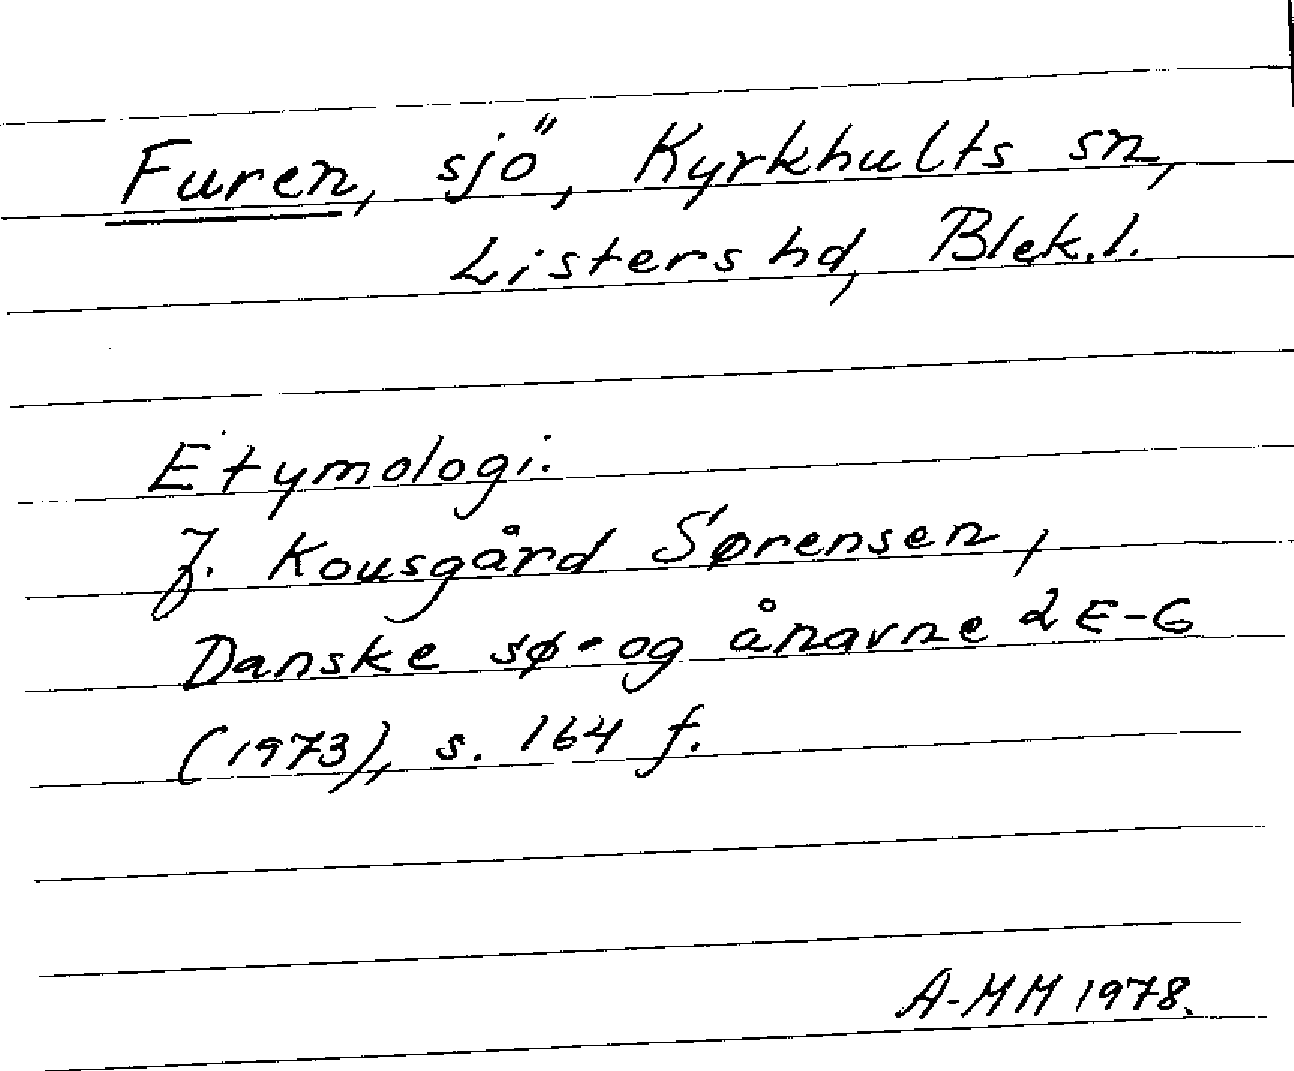 Furen, sjö, Kyrkhults sn,
Listers hd, Blek.l.
Etymologi:
J. Kousgård Sørensen,
Danske sø- og ånavne 2 E-G
(1973), s. 164 f.
A-MM 1978.